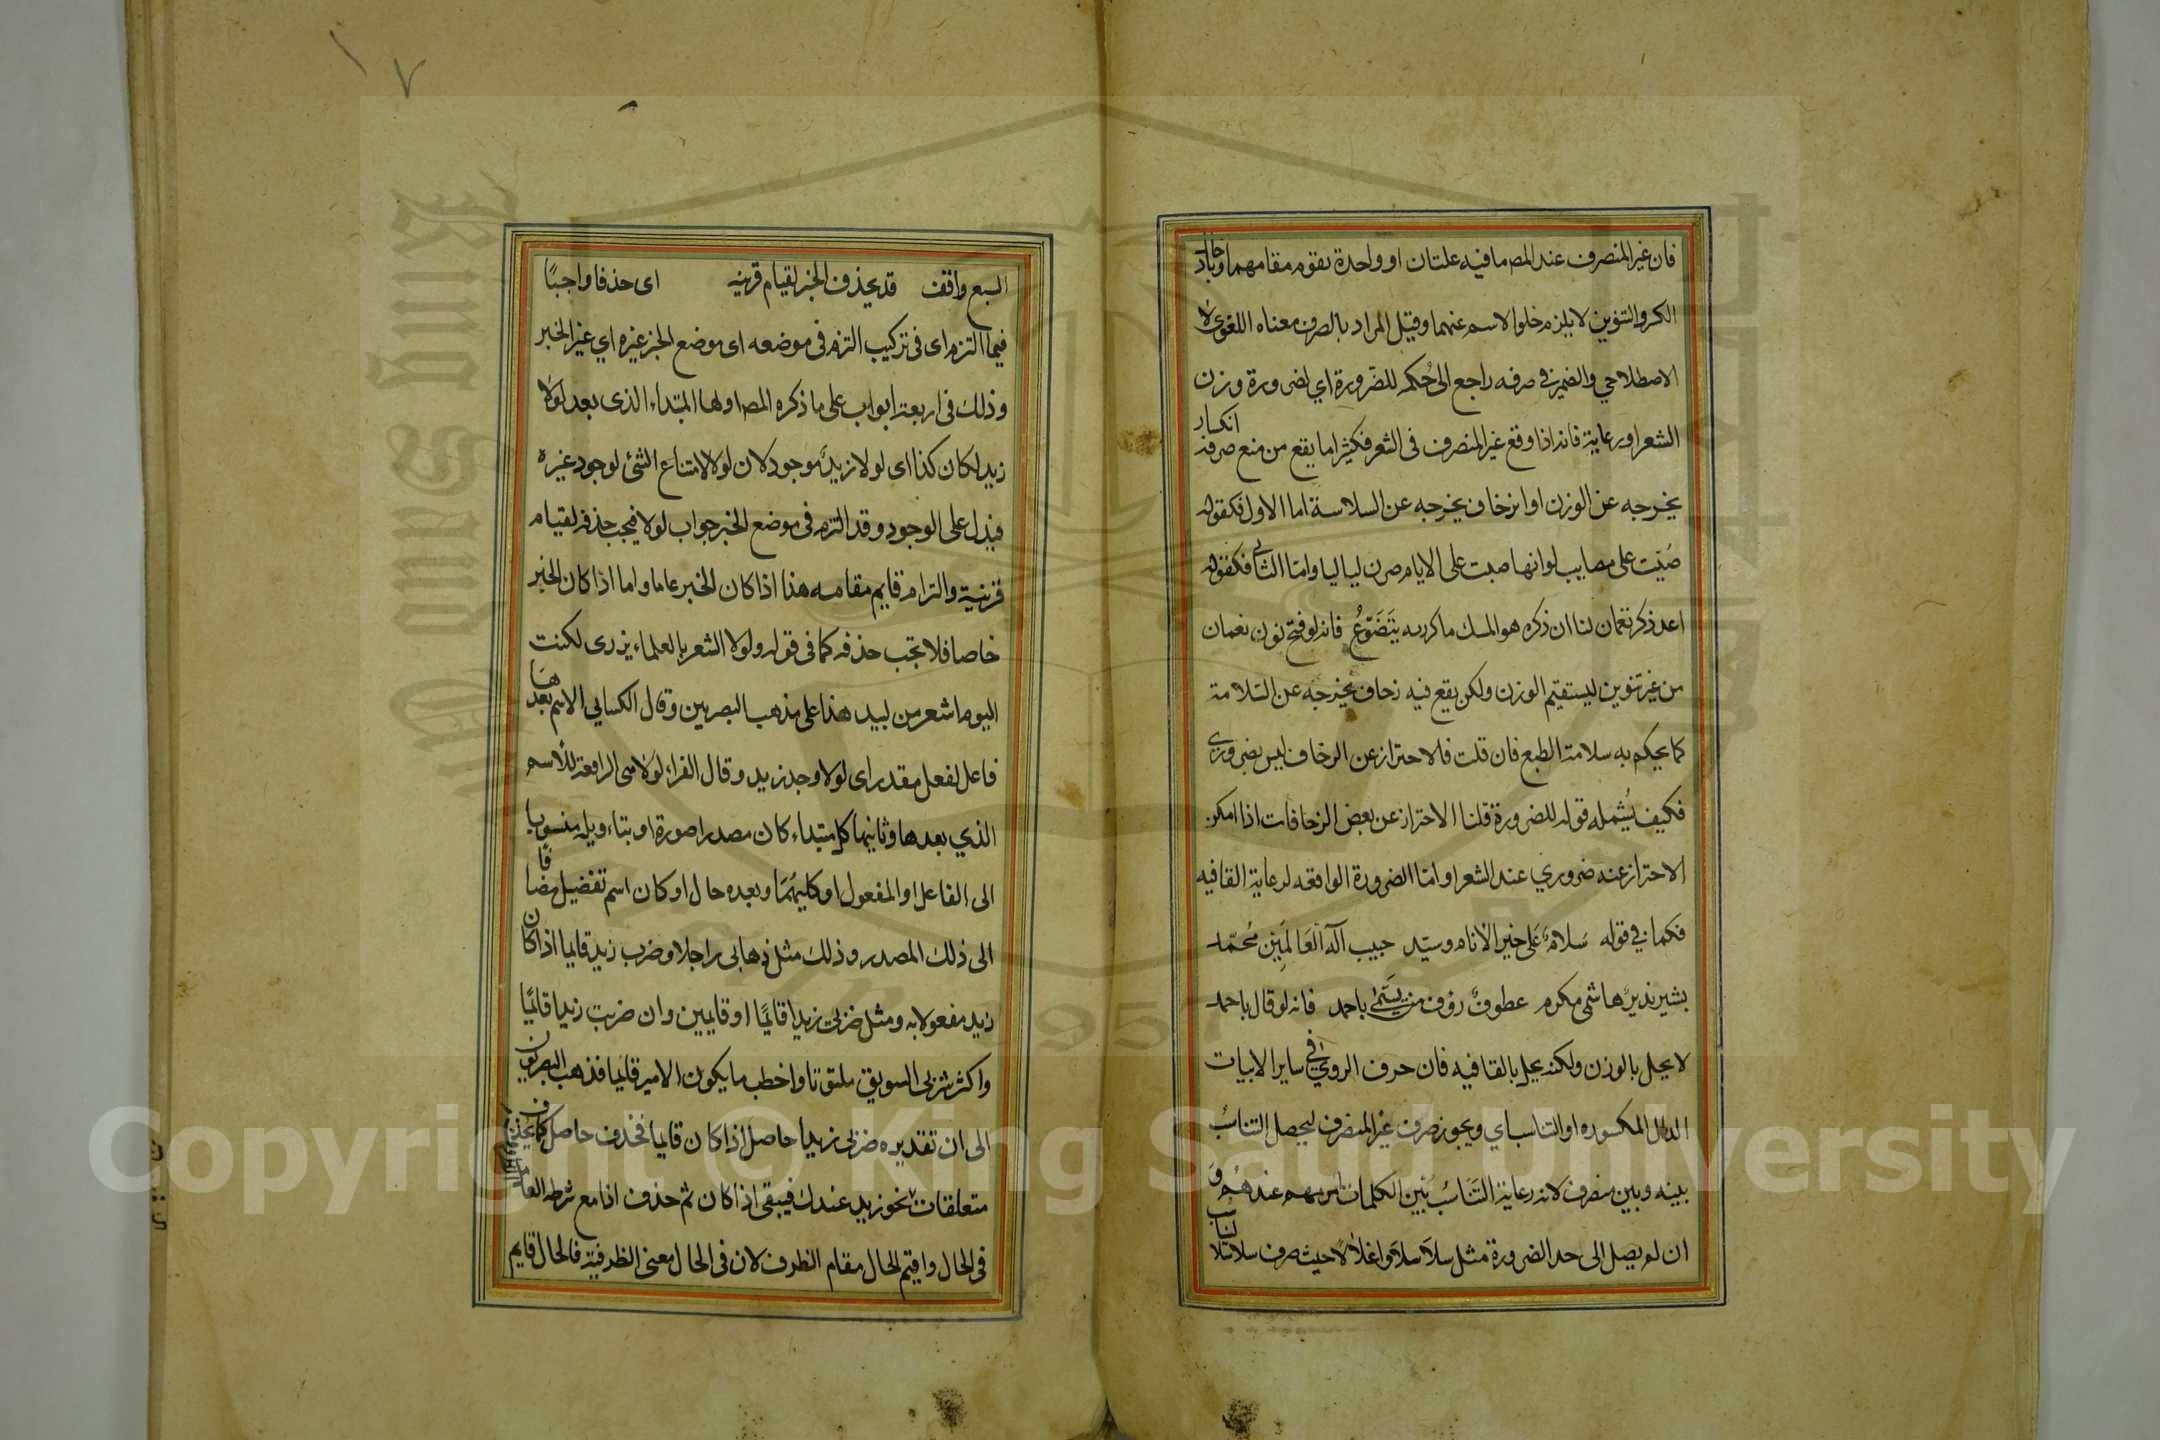 ١٧
فان غير المنصرف عند المص ما فيه علتان او واحدة تقوم مقامهما وبادخال
الكسر والتنوين لا يلزم خلوا الاسم عنهما وقيل المراد بالصرف معناه اللغوى لا
الاصطلاحي والضمير في صرفه راجع الى حُكمه للضّرورة اي لضرورة وزن
الشعر او رعاية فانه اذا وقع غير المنصرف فى الشعر فكثيرا ما يقع من منع صرفه انكسار
يخرجه عن الوزن او انزحاف يخرجه عن السلاسة اما الاول فكقوله
صُبّت على مصايب لو انها صبت على الايام صرن لياليا واما الثانى فكقوله
اعد ذكر نعمان لنا ان ذكره هو المسك ما كررته يَتَضَوّعُ فانه لو فتح نون نعمان
من غير تنوين ليستقيم الوزن ولكن يقع فيه زحاف يخرجه عن السّلامة
كما يحكم به سلامة الطبع فان قلت فالاحتراز عن الزحاف ليس بضرورى
فكيف يُشمله قوله للضرورة قلنا الاحتراز عن بعض الزحافات اذا امكن
الاحتراز عنه ضروري عند الشعرا واما الضرورة الواقعه لرعاية القافيه
فكما في قوله سَلامٌ عَلى خير الانام وسيّد حبيب اله العَالمين مُحمّد
بشير نذير هاشمى مكرم عطوف رؤف من يسَمّى باحمد فانه لو قال باحمد
لا يخل بالوزن ولكنه يخل بالقافيه فان حرف الروي فى ساير الابيات
الدال المكسوره او التناسب اي ويجوز صرف غير المنصرف ليحصل التناسُب
بينه وبين منصرف لانه رعاية التَنَاسُب بَين الكلمات امر مهم عندهُم وَ
ان لم يصل الى حد الضرورة مثل سلاَسلاَ واغلاَلاً حيث صرف سلاسلا لتناسب
السبع واقف قد يحذف الخبر لقيام قرينه اى حذفا واجبًا
فيما التزم اى فى تركيب التزم فى موضعه اى موضع الخبر غيره اي غير الخبر
وذلك فى اربعة ابواب على ما ذكره المص اولها المبتداء الذى بعد لولا
زيد لكان كذا اى لولا زيدٌ موجود لان لولا لامتناع الشئ لوجود غيره
فيدل على الوجود وقد التزم فى موضع الخبر جواب لولا فيجب حذفه لقيام
قرينية والتزام قايم مقامه هذا اذا كان الخبر عاما واما اذا كان الخبر
خاصا فلا تجب حذفه كما فى قوله ولولا الشعر بالعلماء يزرى لكنت
اليوم اشعر من لبيد هذا على مذهب البصريين وقال الكسايى الاسم بعدها
فاعل لفعل مقدر اى لولا وجد زيد وقال الفراء لَولا هى الرافعة للاسم
الذي بعدها وثانيها كل مبتداء كان مصدرا صورة او بتاويله منسوبا
الى الفاعل او المفعول او كليهُمَا وبعده حال او كان اسم تفضيل مضافا
الى ذلك المصدر وذلك مثل ذهابى راجلا وضرب زيد قايما اذا كان
زيد مفعولا به ومثل ضربى زيدا قائِمًا او قايمين وان ضربت زيدا قائِمًا
واكثر شربى السويق ملتوتا واخطب ما يكون الامير قايما فذهب البصريون
الى ان تقديره ضربى زيدا حاصل اذا كان قايما فحذف حاصل كما يحذف
متعلقات نحو زيد عندك فيبقى اذا كان ثم حذف اذا مع شرطه العامل
فى الحال واقيم الحال مقام الظرف لان فى الحال معنى الظرفية فالحال قايم
Copyright © King Saud University
King Saud University
1957